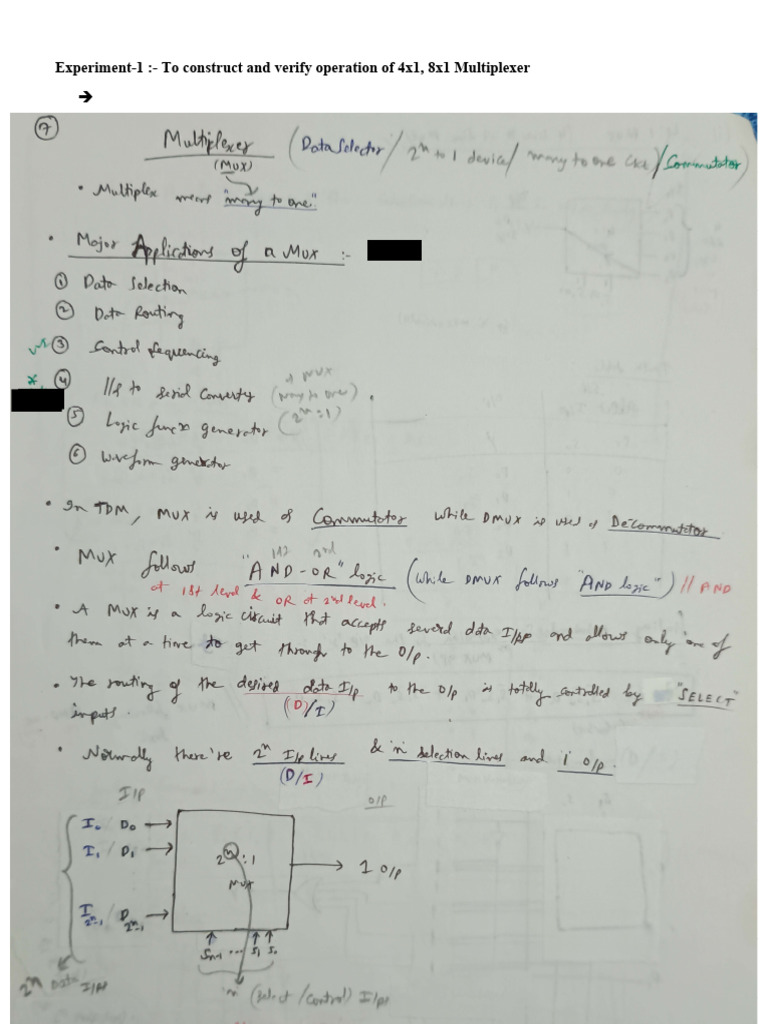 Experiment-1 :- To construct and verify operation of 4x1, 8x1 Multiplexer
➔
7
Multiplexer (Data Selector / 2^n to 1 device / many to one Ckt / Commutator)
(MUX)
• Multiplex means "many to one"
• Major Applications of a MUX :-
① Data Selection
② Data Routing
③ Control Sequencing
④ //l to serial Converter (many to one) .
MUX
⑤ Logic funcn generator (2^n : 1)
⑥ Waveform generator
• In TDM, MUX is used as Commutator while DMUX is used as De-commutator
1st 2nd
• MUX follows "AND-OR" logic (while DMUX follows "AND logic") // AND
at 1st level & OR at 2nd level.
• A MUX is a logic circuit that accepts several data I/Ps and allows only one of
them at a time to get through to the O/P.
• The routing of the desired data I/p to the O/P is totally controlled by "SELECT"
(D/I)
inputs.
• Normally there're 2^n I/p lines & 'n' selection lines and 1 O/P.
(D/I)
I/P
O/P
I0 / D0
I1 / D1
2^n : 1
MUX
1 O/P
I2^n-1 / D2^n-1
Sn-1 ... S1 S0
2^n Data I/Ps
'n' (select / control) I/Ps